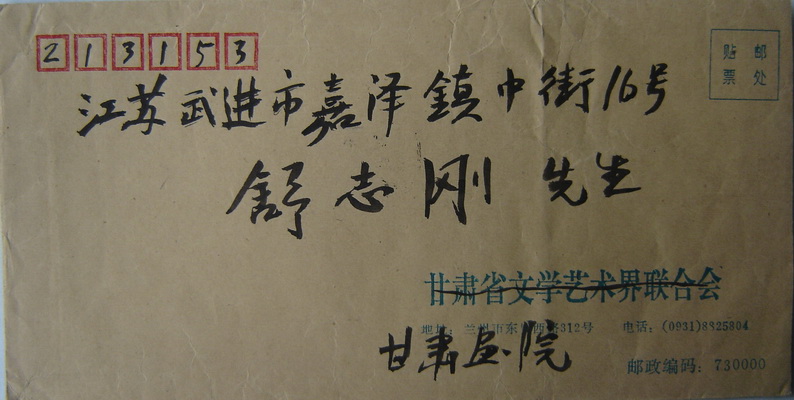 213153
贴邮
票处
江苏武进市嘉泽鎮中街16号
舒志刚先生
甘肃省文学艺术界联合会
地址：兰州市东岗西路312号 电话：(0931)8825804
甘肃画院
邮政编码：730000